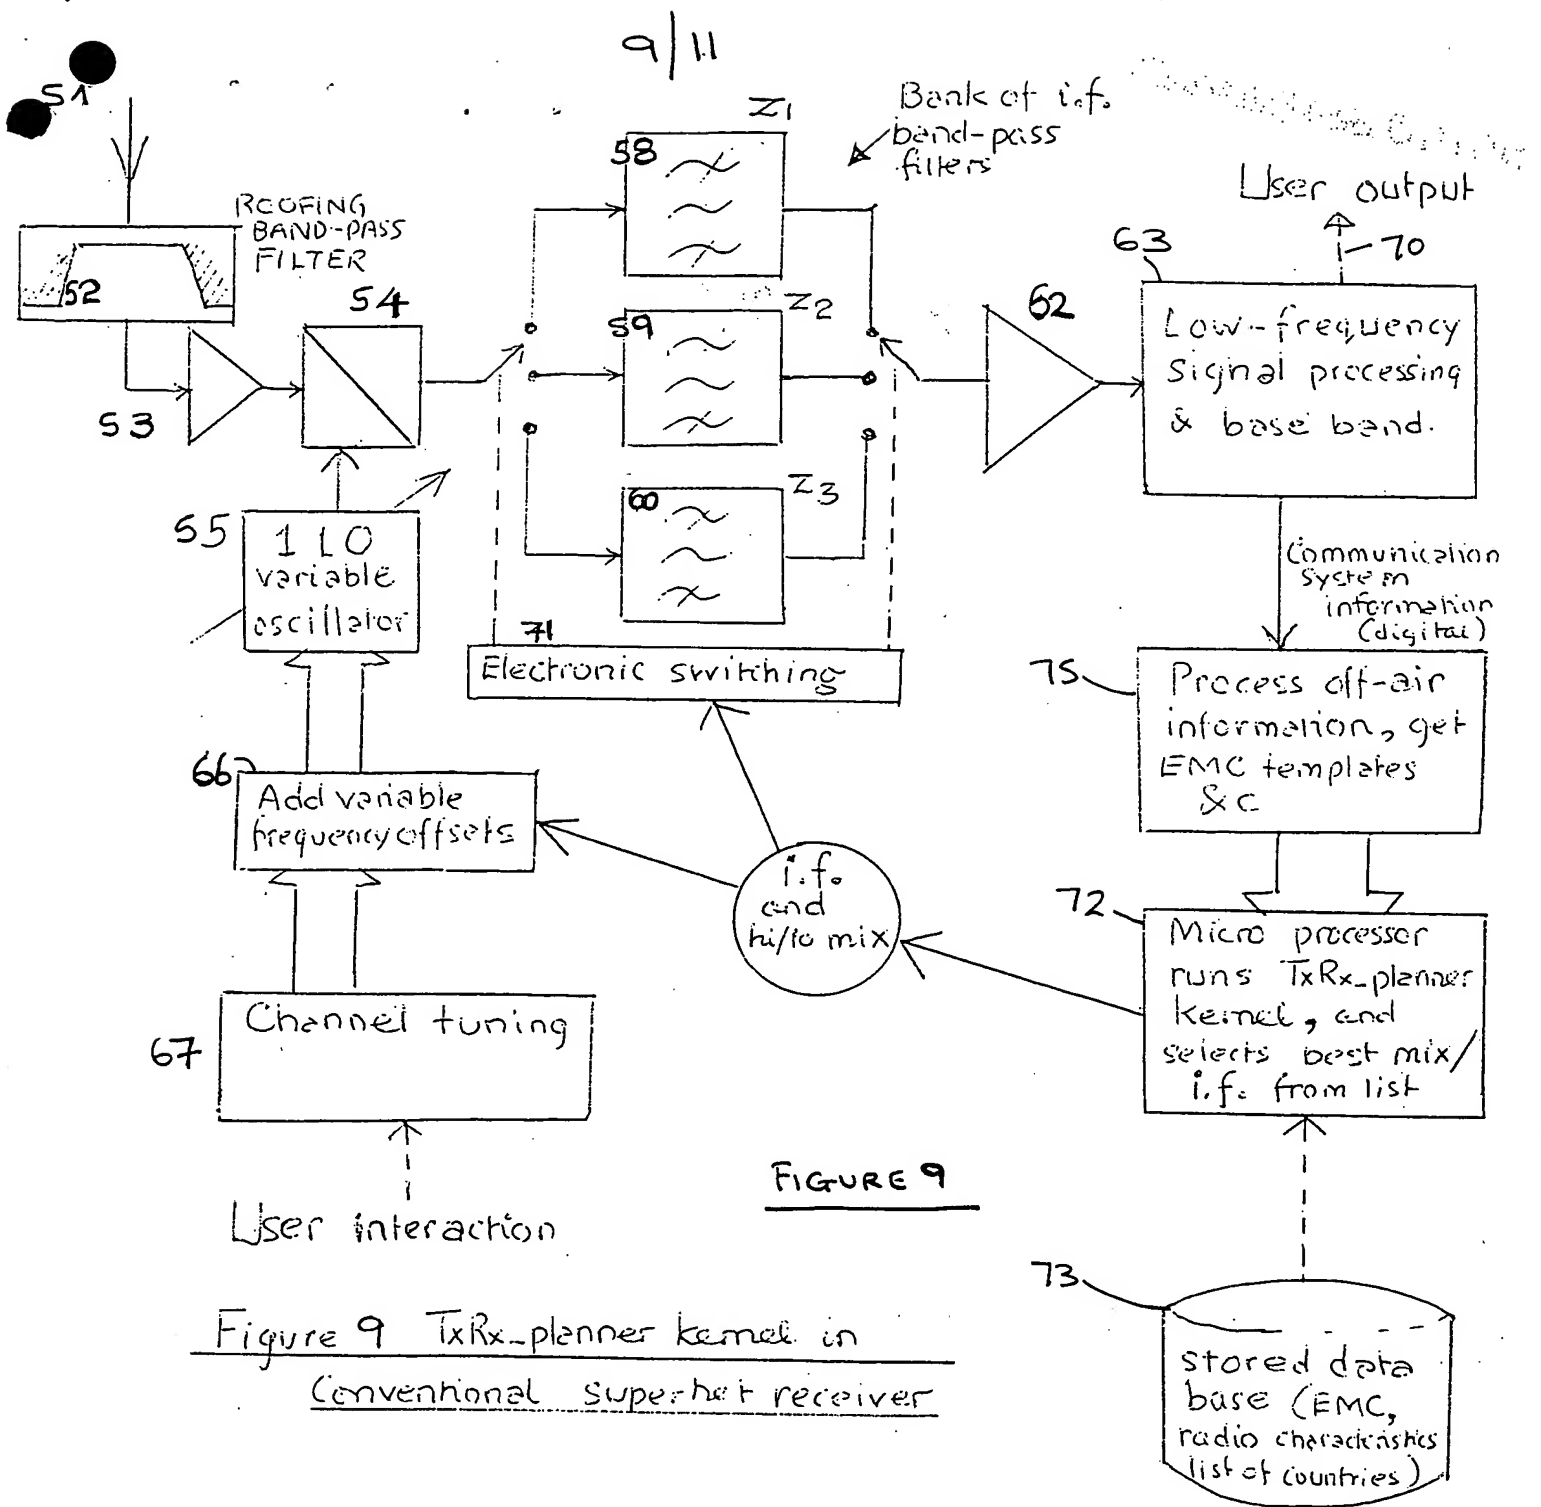 9/11
51
ROOFING
BAND-PASS
FILTER
52
53
54
Z1
58
Z2
59
Z3
60
Bank of i.f.
band-pass
filters
62
63
User output
70
Low-frequency
Signal processing
& base band.
55
1 LO
variable
oscillator
71
Electronic switching
Communication
system
information
(digital)
75
Process off-air
information, get
EMC templates
&c
66
Add variable
frequency offsets
i.f.
and
hi/lo mix
72
Micro processor
runs TxRx_planner
kernel, and
selects best mix/
i.f. from list
67
Channel tuning
User interaction
FIGURE 9
73
stored data
base (EMC,
radio characteristics
list of countries)
Figure 9 TxRx_planner kernel in
Conventional superhet receiver